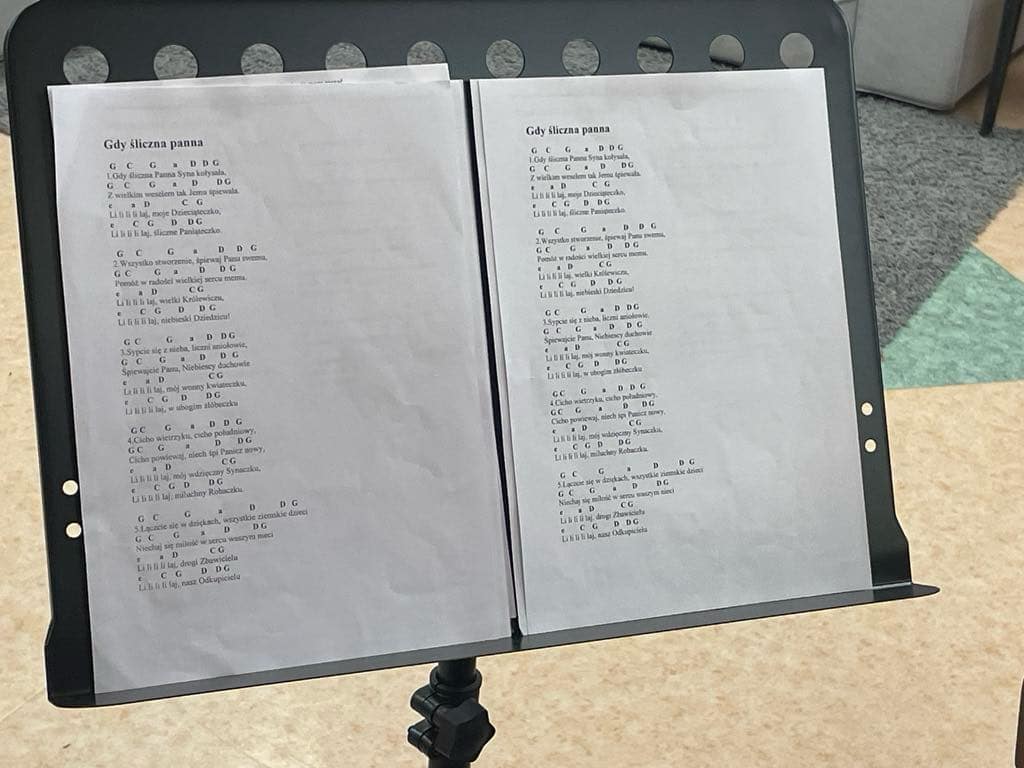 Gdy śliczna panna
G C G a D D G
1.Gdy śliczna Panna Syna kołysała,
G C G a D D G
Z wielkim weselem tak Jemu śpiewała.
e a D C G
Li li li li laj, moje Dzieciąteczko,
e C G D D G
Li li li li laj, śliczne Paniąteczko.
G C G a D D G
2.Wszystko stworzenie, śpiewaj Panu swemu,
G C G a D D G
Pomóż w radości wielkiej sercu memu.
e a D C G
Li li li li laj, wielki Królewiczu,
e C G D D G
Li li li li laj, niebieski Dziedzicu!
G C G a D D G
3.Sypcie się z nieba, liczni aniołowie,
G C G a D D G
Śpiewajcie Panu, Niebiescy duchowie
e a D C G
Li li li li laj, mój wonny kwiateczku,
e C G D D G
Li li li li laj, w ubogim żłóbeczku
G C G a D D G
4.Cicho wietrzyku, cicho południowy,
G C G a D D G
Cicho powiewaj, niech śpi Panicz nowy,
e a D C G
Li li li li laj, mój wdzięczny Synaczku,
e C G D D G
Li li li li laj, miluchny Robaczku.
G C G a D D G
5.Łączcie się w dziękach, wszystkie ziemskie dzieci
G C G a D D G
Niechaj się miłość w sercu waszym nieci
e a D C G
Li li li li laj, drogi Zbawicielu
e C G D D G
Li li li li laj, nasz Odkupicielu
Gdy śliczna panna
G C G a D D G
1.Gdy śliczna Panna Syna kołysała,
G C G a D D G
Z wielkim weselem tak Jemu śpiewała.
e a D C G
Li li li li laj, moje Dzieciąteczko,
e C G D D G
Li li li li laj, śliczne Paniąteczko.
G C G a D D G
2.Wszystko stworzenie, śpiewaj Panu swemu,
G C G a D D G
Pomóż w radości wielkiej sercu memu.
e a D C G
Li li li li laj, wielki Królewiczu,
e C G D D G
Li li li li laj, niebieski Dziedzicu!
G C G a D D G
3.Sypcie się z nieba, liczni aniołowie,
G C G a D D G
Śpiewajcie Panu, Niebiescy duchowie
e a D C G
Li li li li laj, mój wonny kwiateczku,
e C G D D G
Li li li li laj, w ubogim żłóbeczku
G C G a D D G
4.Cicho wietrzyku, cicho południowy,
G C G a D D G
Cicho powiewaj, niech śpi Panicz nowy,
e a D C G
Li li li li laj, mój wdzięczny Synaczku,
e C G D D G
Li li li li laj, miluchny Robaczku.
G C G a D D G
5.Łączcie się w dziękach, wszystkie ziemskie dzieci
G C G a D D G
Niechaj się miłość w sercu waszym nieci
e a D C G
Li li li li laj, drogi Zbawicielu
e C G D D G
Li li li li laj, nasz Odkupicielu